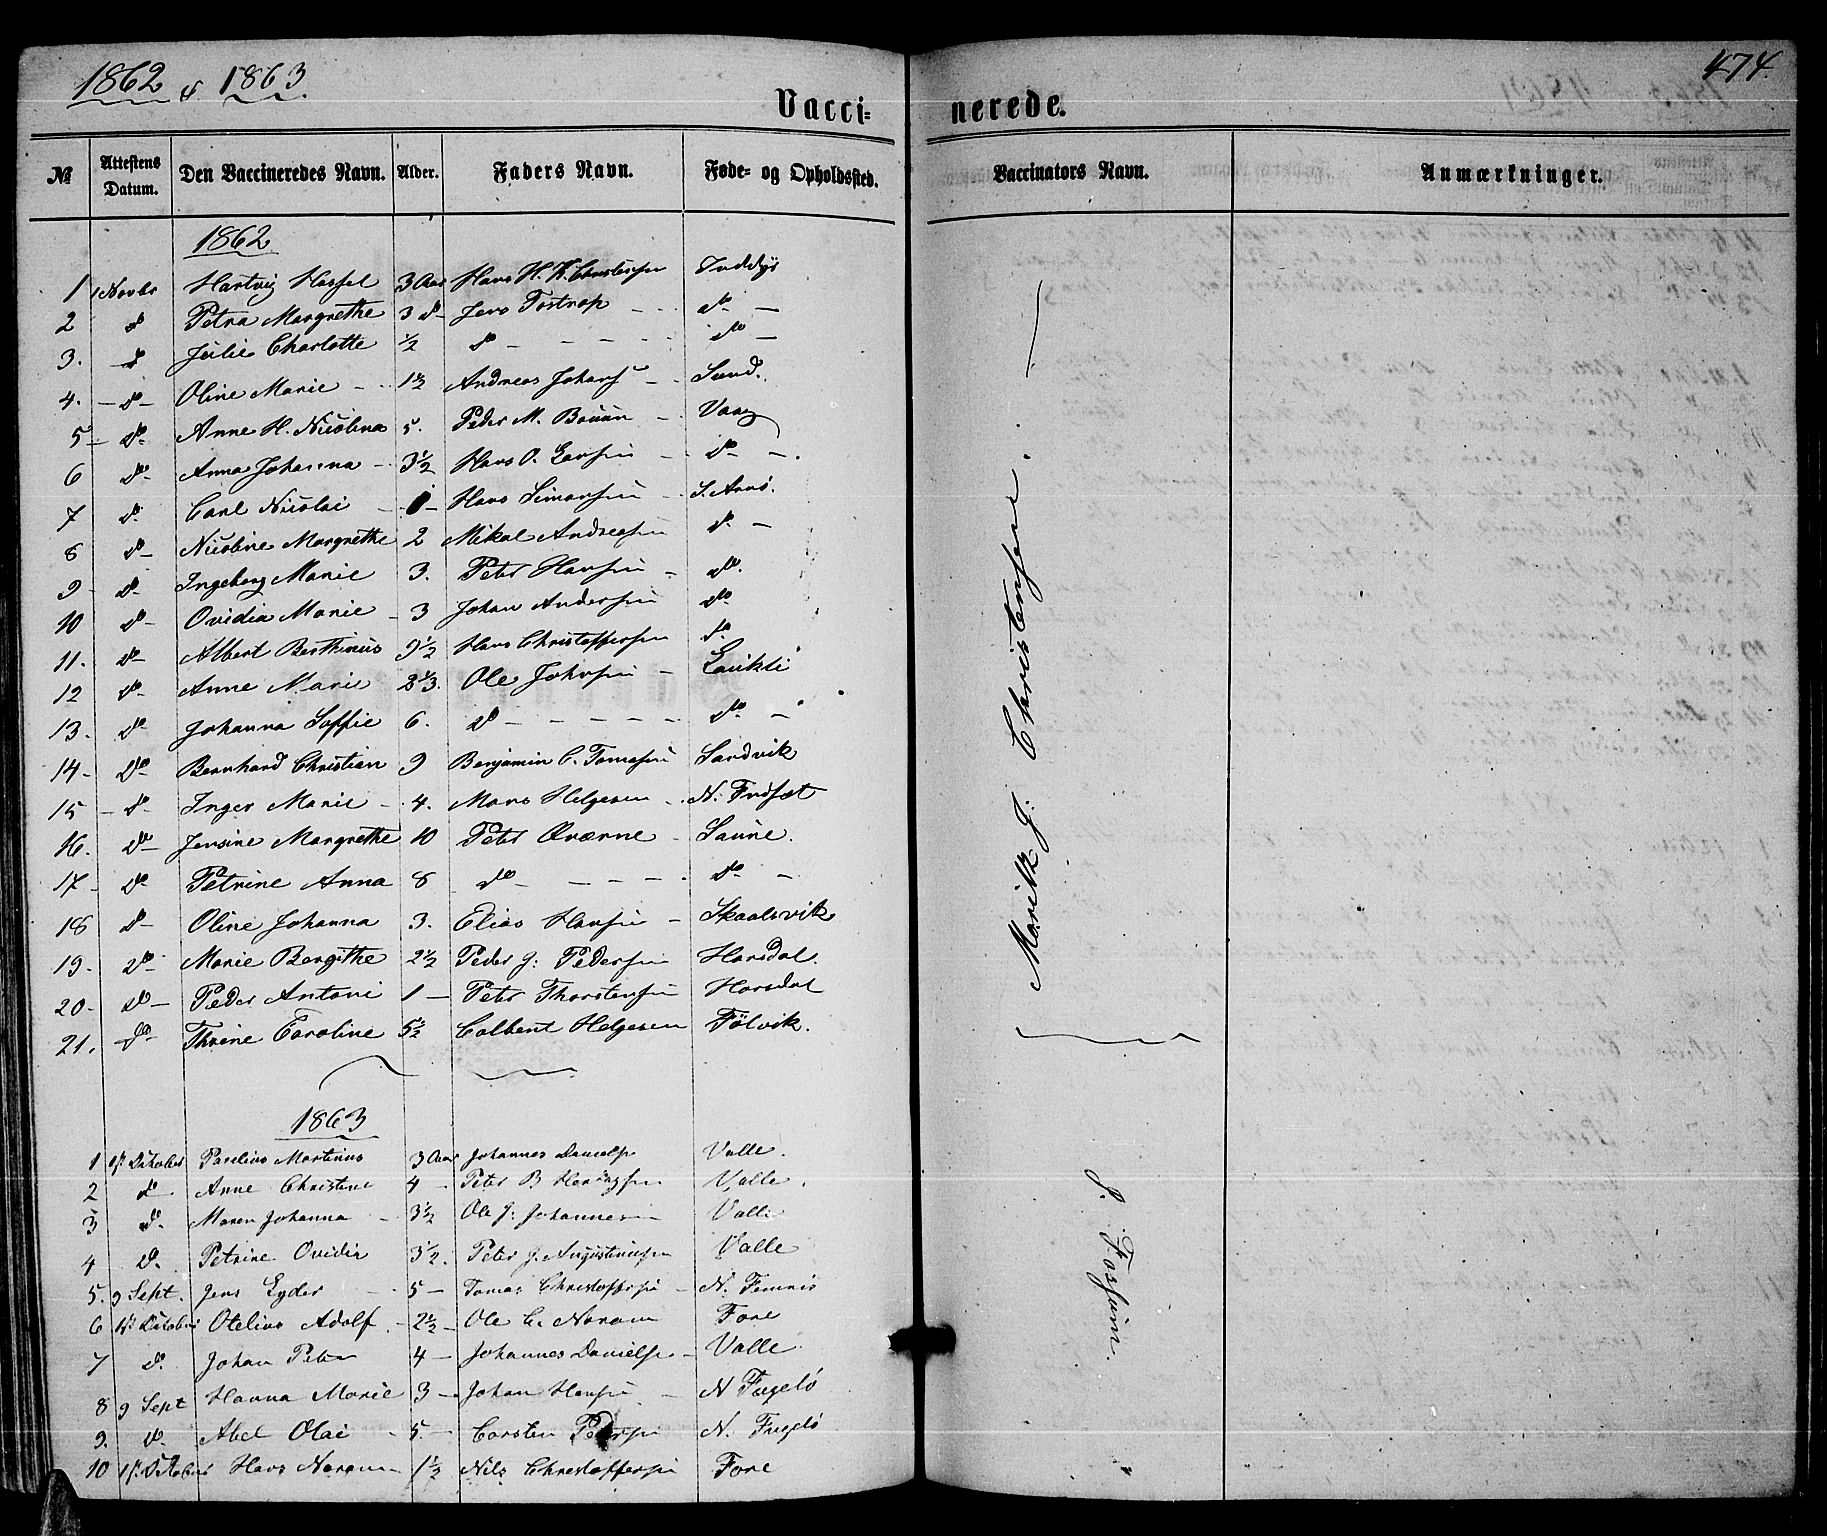 1862 & 1863.
474.
Vacci- nerede.
№ Attestens Datum. Den Vaccineredes Navn. Alder. Faders Navn. Føde- og Opholdssted. Vaccinators Navn. Anmærkninger.
1862
1 1 Novbr Hartvig Hassel 3 Aar Hans H. K. Christensen Inddyr
2 do Petra Margrethe 3 do Jens Tostrop do
3. do Julie Charlotte 1/2 do do
4. do Oline Marie 1 1/2 Andreas Johans Sund.
5 do Anne H. Nicolina 5. Peder M. Vaag
6 do Anna Johanna 3 1/2 Hans O. do
7 do Carl Nicolai 1 Hans Simonsen S. Arnö.
8 do Nicoline Margrethe 2 Mikal Andreasen do
9 do Ingeborg Marie 3. Peter Hansen do
10 do Ovidia Marie 3 Johan Andersen do
11. do Albert Berthinus 9 1/2 Hans Christoffersen do
12 do Anne Marie 2 1/3. Ole Johnsen
13. do Johanna Soffie 6. do do
14 do Bernhard Christian 9 Benjamin C. Tomesen Sandvik
15 do Inger Marie 4. Mons Helgesen
16. do Jensine Margrethe 10 Peter Qværne
17 do Petrine Anna 8 do do
18 do Oline Johanna 3. Elias Hansen Skaalsvik
19. do Marie Bergithe 2 1/2 Peder J: Pedersen Horsdal.
20. do Peder Antoni 1 Peter Thorstensen Horsdal
21. do Thrine Caroline 5 1/2 Colbent Helgesen Fölvik.
Moritz J: Christensen.
1863
1 1ste Oktober Parelius Martinus 3 Aar Johannes Danielsen Valle.
2 do Anne Christine 4 Peter B Valle.
3 do Maren Johanna 3 1/2 Ole J: Johannesen Valle
4 do Petrine Ovidia 3 1/2. Peter J. Augustinusen Valle
5. 9 Sept. Jens Eyder 5 Tomas Christoffersen
6 1st Oktober Otelius Adolf 2 1/2 Ole C. Noram Fore
7 do Johan Peter 4 Johannes Danielsen Valle
8 9 Sept Hanna Marie 3 Johan Hansen N Fugelö
9. do Abel Olai 5. Carsten Pedersen N. Fugelö
10 1st Oktober Hans Noram 1 1/2 Nils Christoffersen Fore
J.